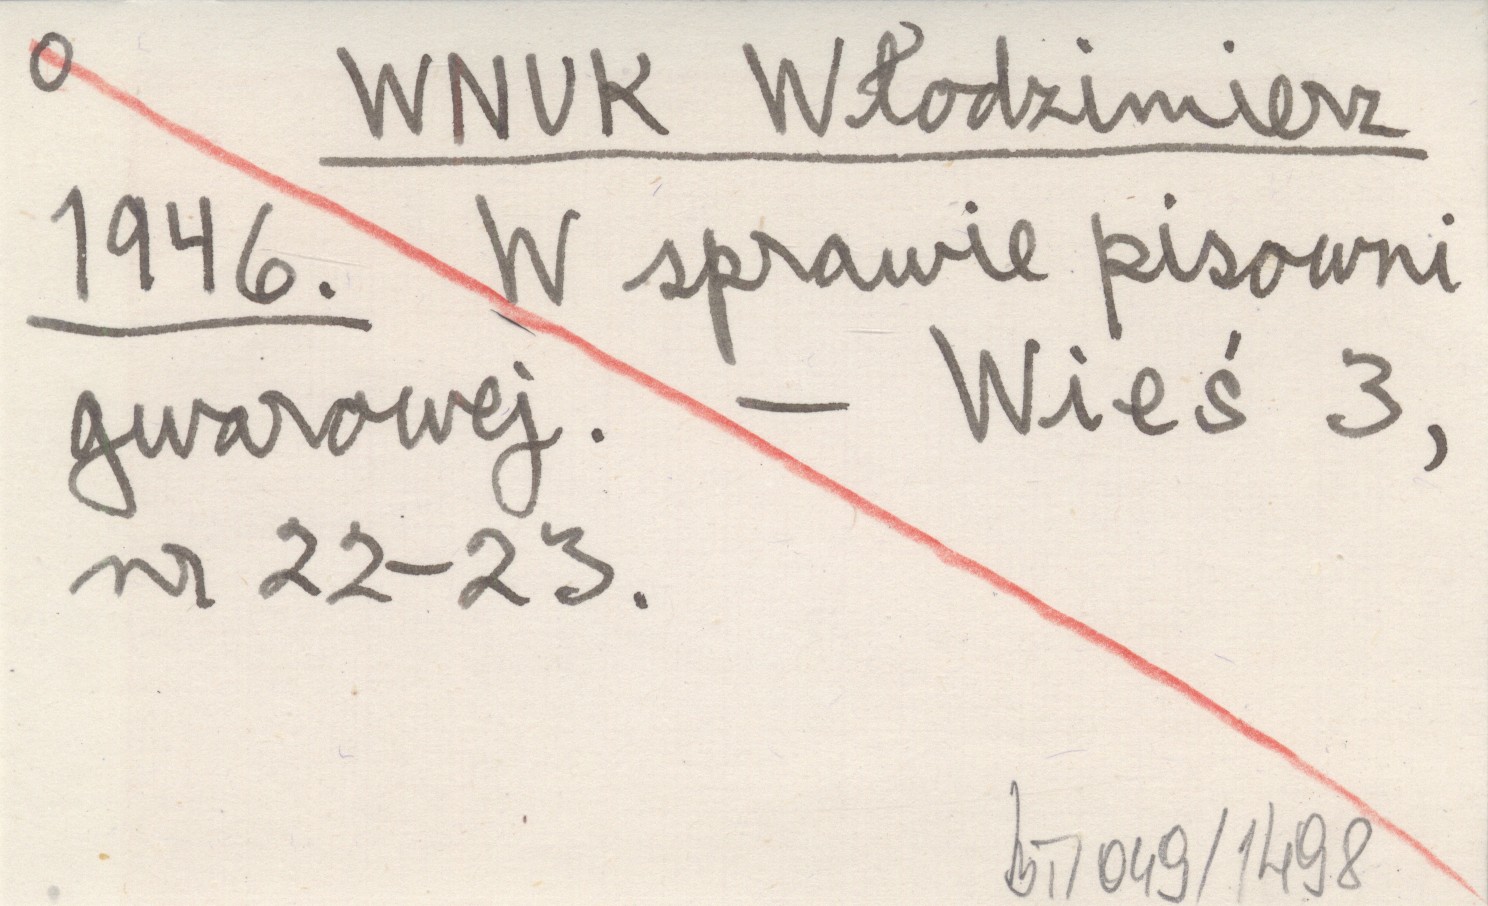 O WNUK Włodzimierz
1946. W sprawie pisowni
gwarowej. — Wieś 3,
nr 22-23.
049/1498